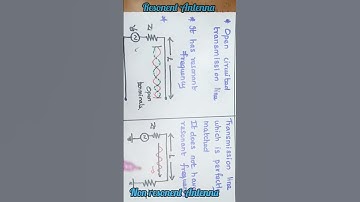 Resonent Antenna
* Open circuited
transmission line
* It has resonant
frequency
*
Z
L
open
terminals
Transmission line
which is perfectly
matched
It does not have
resonant frequency
Z
L
Non resonent Antenna